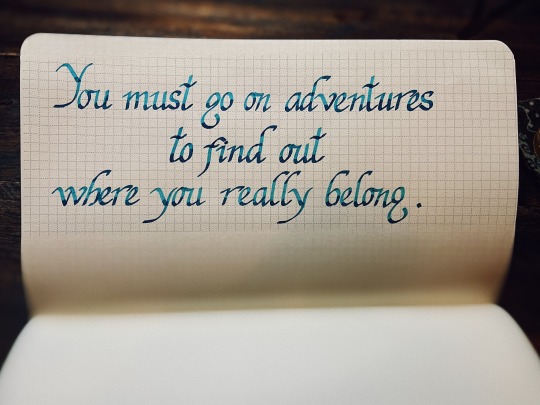 You must go on adventures
to find out
where you really belong.